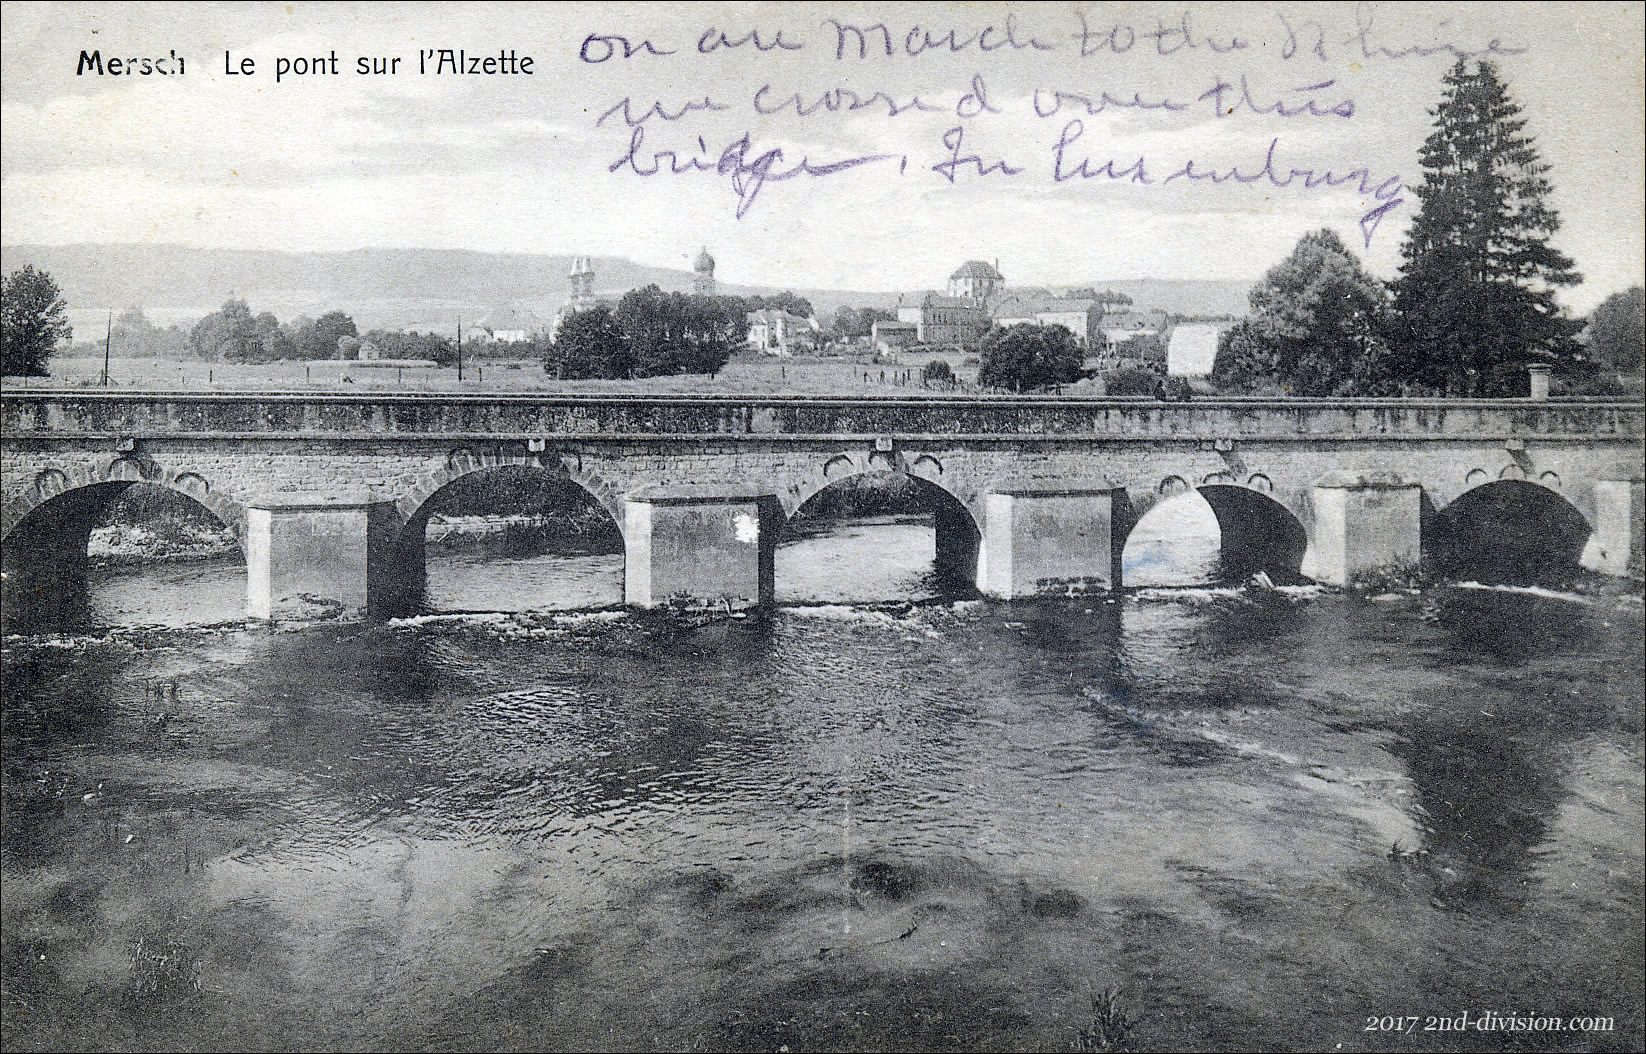 Mersch Le pont sur l'Alzette
on our March to the Rhine
we crossed over this
bridge, In Luxenburg
2017 2nd-division.com